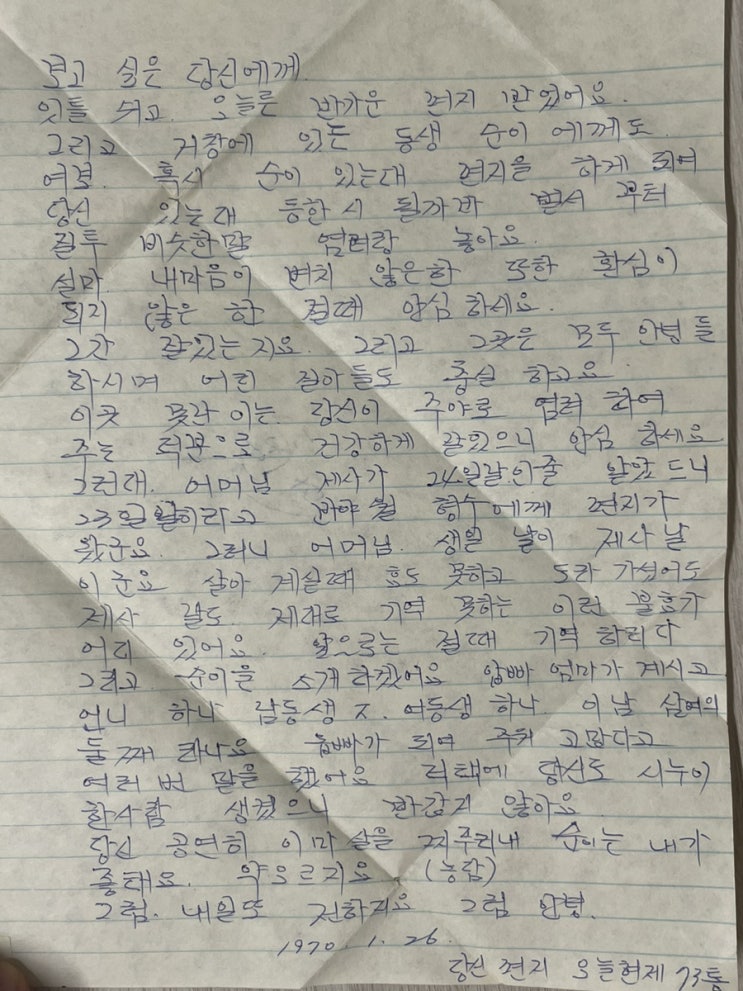 보고 싶은 당신에께
잇틀 쉬고. 오늘른 반가운 편지 받았어요.
그리고 거창에 있는 동생 순이 에께도
여경. 혹시 순이 있는대 편지을 하게 되여
당신 있는대 등한 시 될가봐 벌서 부터
질투 비슷한말 염려랑 놓아요.
설마 내마음이 변치 않은한 또한 환심이
되지 않은 한 절때 안심 하세요.
그간 잘있는 지요. 그리고 그곳은 모두 안녕 들
하시며 어린 질아 들도 충실 하고요
이곳 못난 이는 당신이 주야로 염려 하여
주는 덕분으로 건강하게 잘있으니 안심 하세요
그런대. 어머님 제사가 24일날인줄 알았 드니
23일날이라고 형수에께 편지가
왔군요. 그러니 어머님. 생일 날이 제사 날
이군요 살아 계실때 효도 못하고 도라 가셨어도
제사 날도 제대로 기역 못하는 이런 불효가
어디 있어요. 앞으로는 절때 기역 하리다
그리고 순이을 소개 하겠어요 압빠 엄마가 계시고
언니 하나 남동생 ㅈ. 여동생 하나. 이남 삼여의
둘째 라나요 옵빠가 되여 주워 고맙다고
여러 번 말을 했어요 덕태에 당신도 시누이
한사람 생겼으니 반갑지 않아요
당신 공연히 이마 살을 찌푸리내 순이는 내가
좋태요. 약오르지요. (농담)
그럼. 내일또 전하지요 그럼 안녕.
1970. 1. 26.
당신 편지 오늘현제 73통